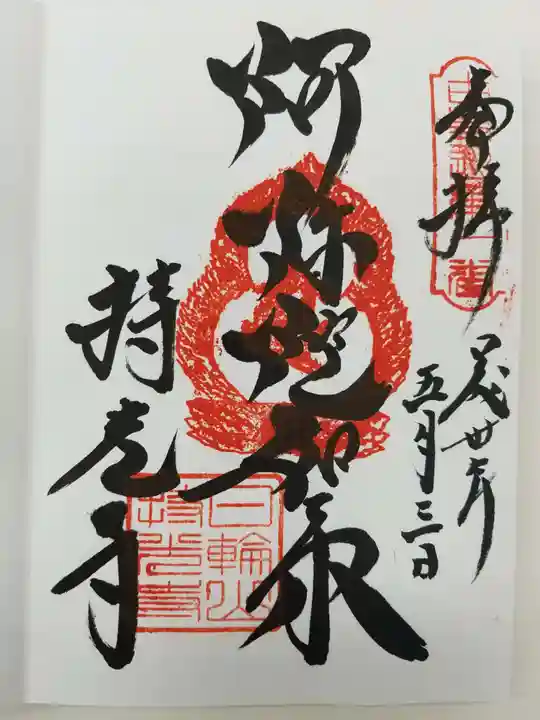 奉拝
平成卅一年
五月三日
阿弥陀如来
持光寺
日輪山
持光寺